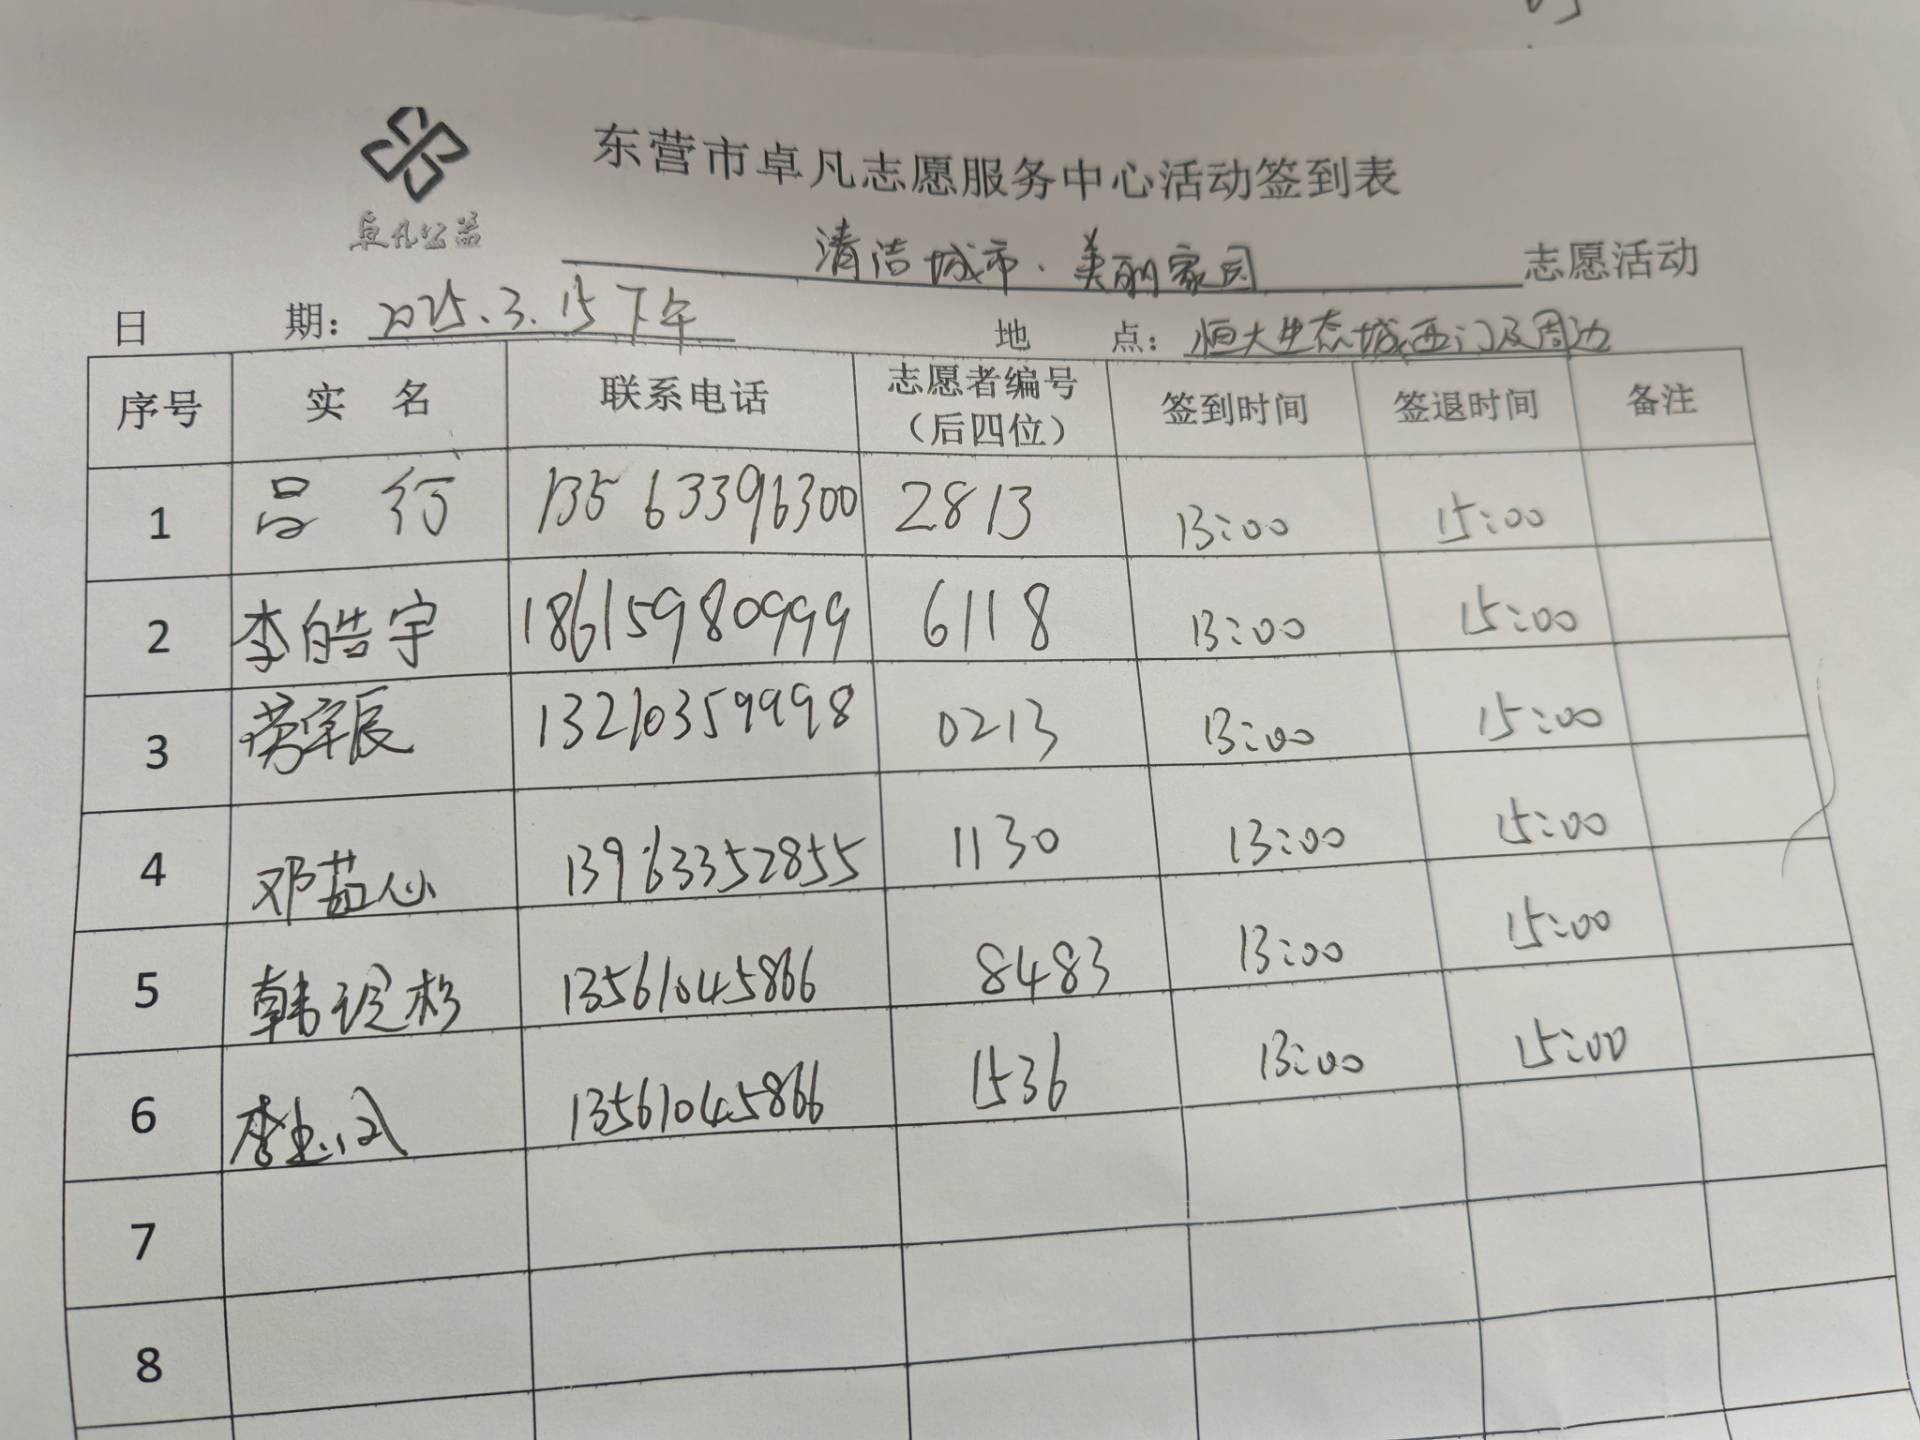 东营市卓凡志愿服务中心活动签到表
卓凡公益
清洁城市.美丽家园 志愿活动
日 期: 2025.3.15下午 地 点: 恒大生态城西门及周边
序号 实 名 联系电话 志愿者编号(后四位) 签到时间 签退时间 备注
1 吕 行 13563396300 2813 13:00 15:00
2 李皓宇 18615980999 6118 13:00 15:00
3 宇辰 13210359998 0213 13:00 15:00
4 邓茹心 13963352855 1130 13:00 15:00
5 韩 杉 13561045866 8483 13:00 15:00
6 李 13561045866 1536 13:00 15:00
7
8